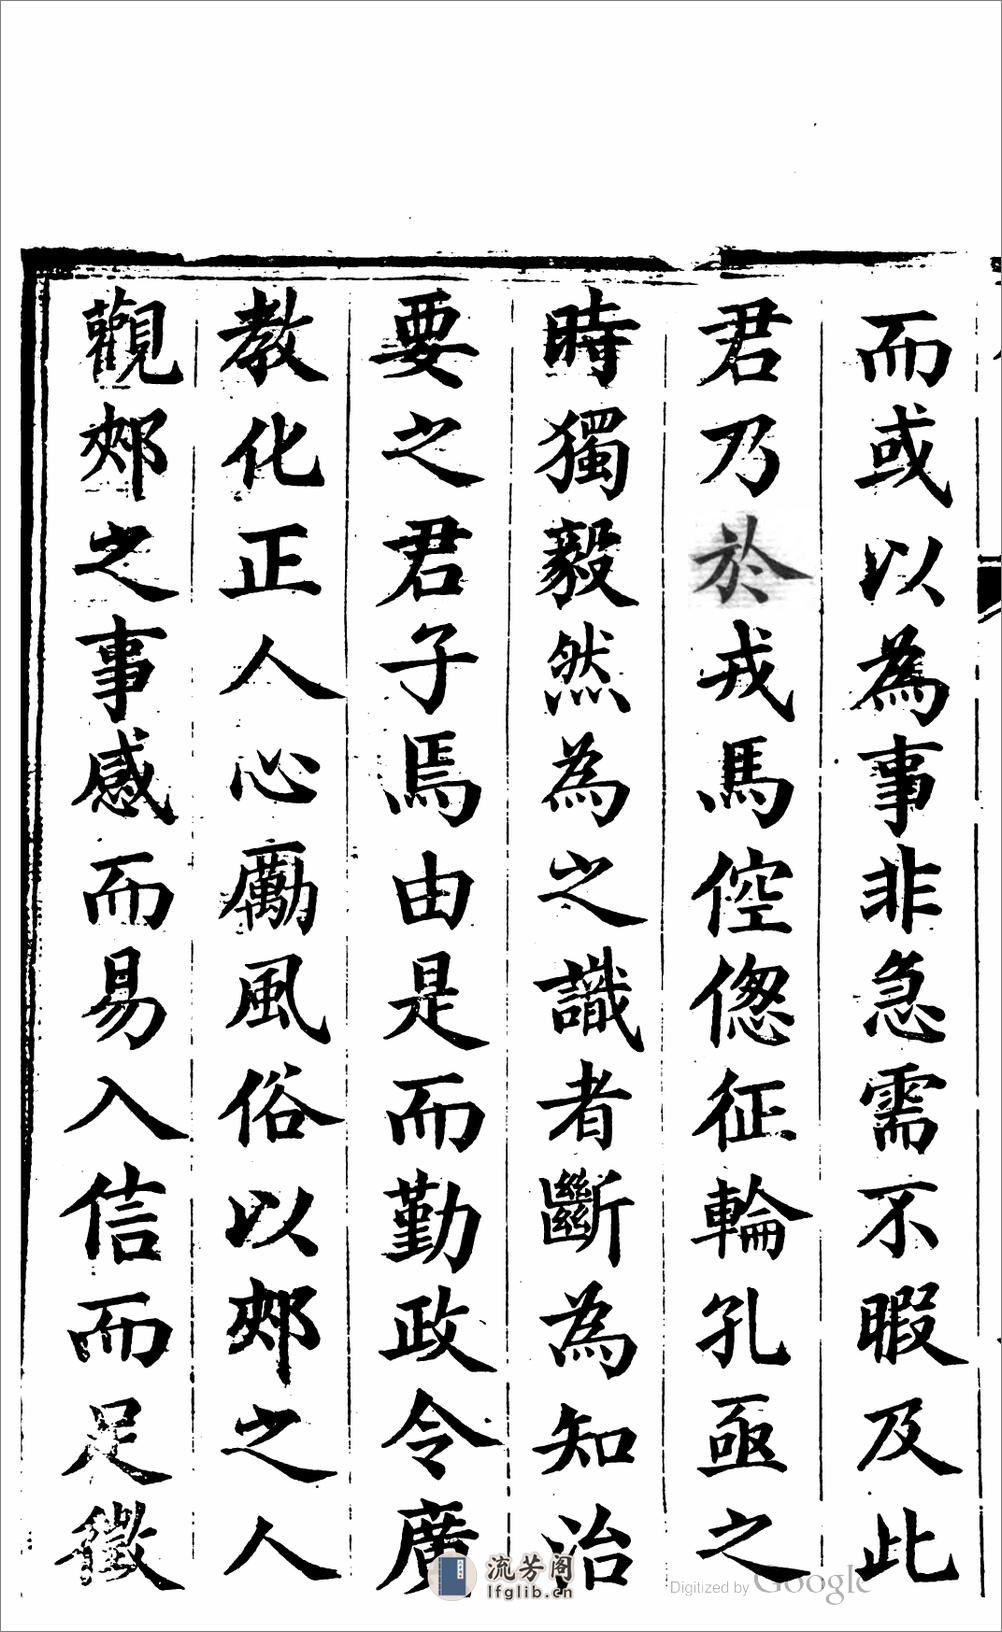 而或以為事非急需不暇及此
君乃於戎馬倥偬征輪孔亟之
時獨毅然為之識者斷為知治
要之君子焉由是而勤政令廣
教化正人心勵風俗以郟之人
觀郟之事感而易入信而足徵
流芳阁
lfglib.cn
Digitized by Google